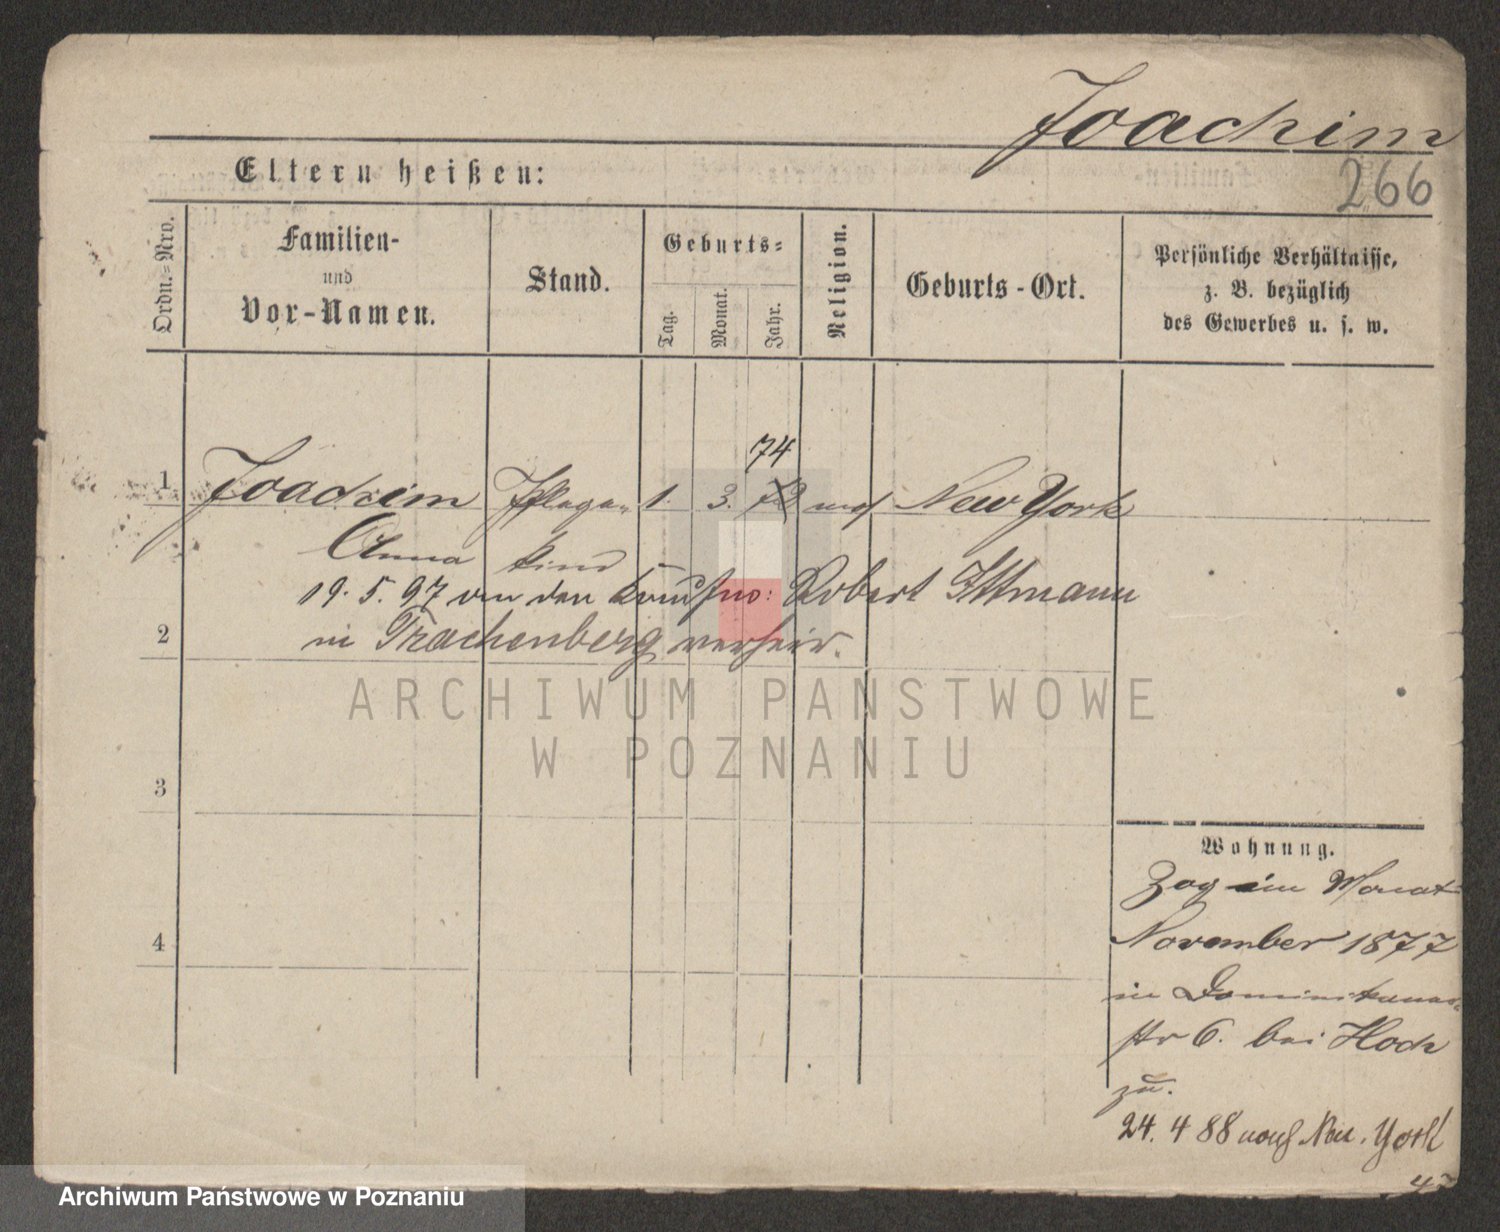 Joachim
266
Eltern heißen:
Ordn.-Nro.
Familien-
und
Vor-Namen.
Stand.
Geburts-
Tag.
Monat.
Jahr.
Religion.
Geburts-Ort.
Persönliche Verhältnisse,
z. B. bezüglich
des Gewerbes u. s. w.
74
1 Joachim Pflege- 1. 3. 73 mos New York
Anna Kind
19. 5. 97 von den Kaufm: Robert Ittmann
2 in Trachenberg verheir.
ARCHIWUM PANSTWOWE
W POZNANIU
3
4
Wohnung.
Zog im Monat
November 1877
in Dominikaner-
str 6. bei Hoch
zu.
24. 4 88 nach New. York
Archiwum Państwowe w Poznaniu